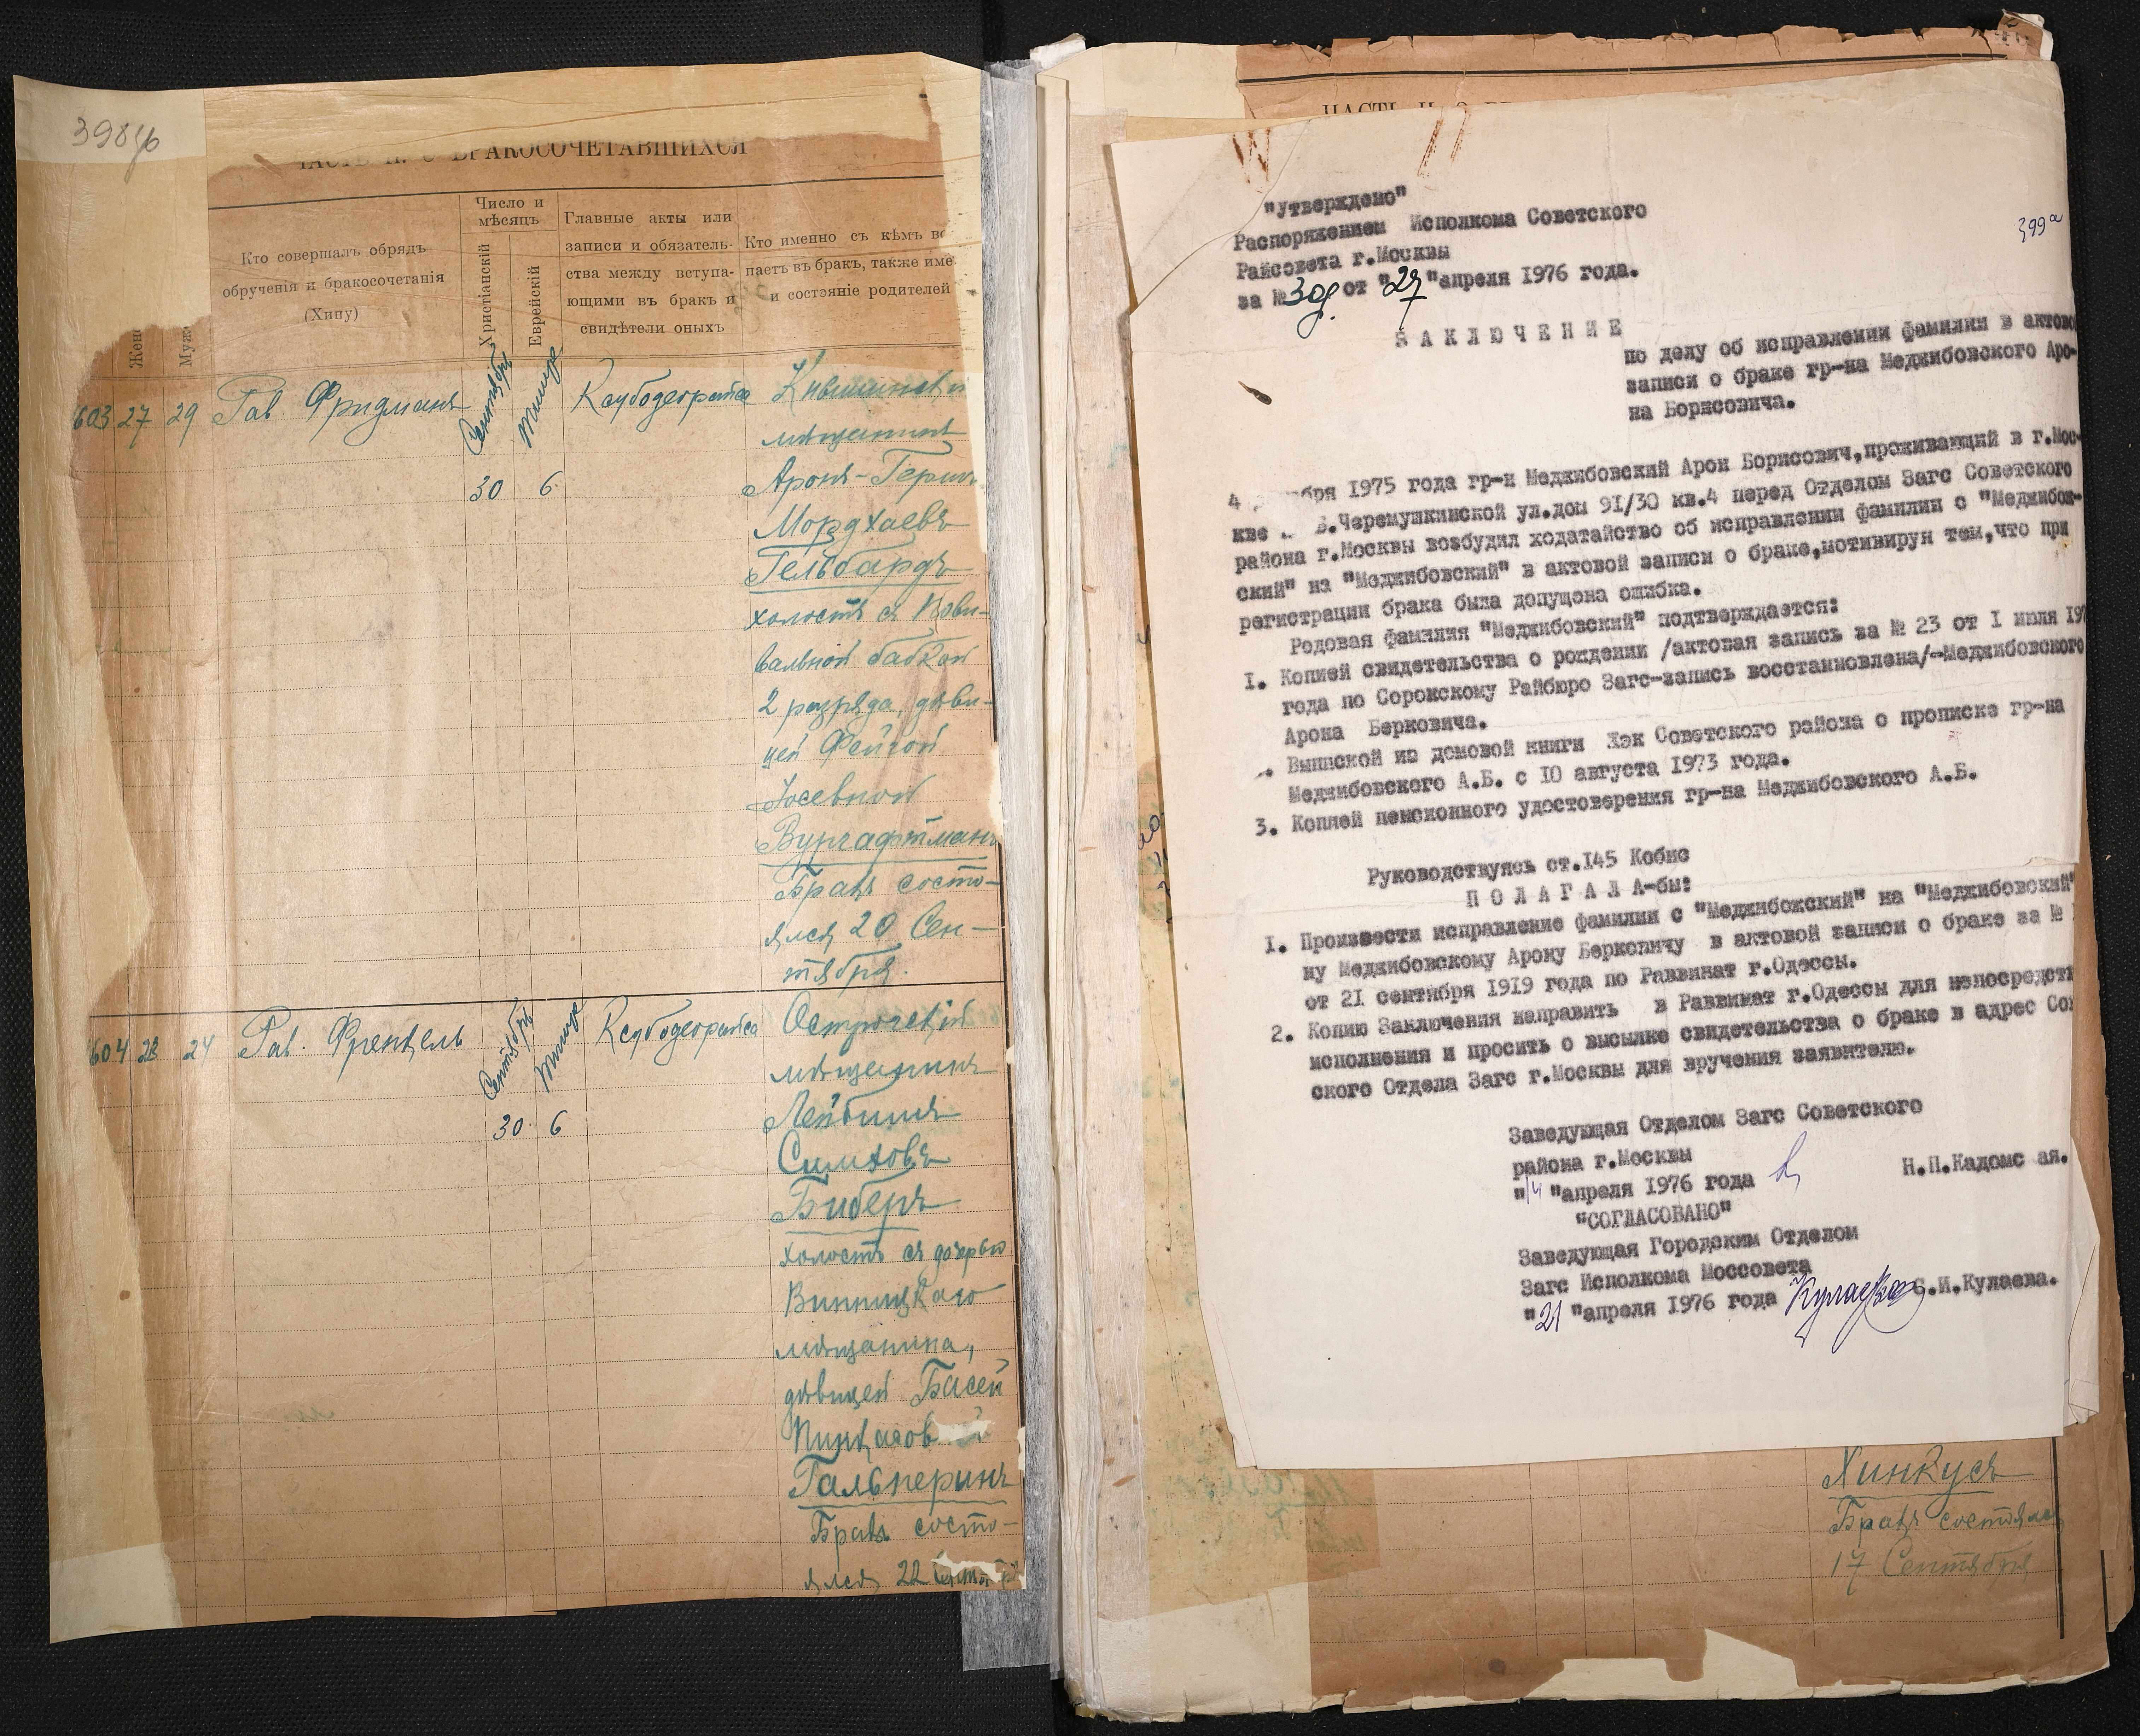 398об
ЧАСТЬ II. О БРАКОСОЧЕТАВШИХСЯ
Жен
Мужс
Кто совершалъ обрядъ
обрученія и бракосочетанія
(Хипу)
Число и
мѣсяцъ
Христіанскій
Еврейскій
Главные акты или
записи и обязатель-
ства между вступа-
ющими въ бракъ и
свидѣтели оныхъ
Кто именно съ кѣмъ вс
паетъ въ бракъ, также име
и состояніе родителей
603 27 29 Рав. Фридманъ
Сентябрь
30
Тишре
6
Ксубодеорайса
Кишиневскій
мѣщанинъ
Аронъ-Герш
Мордхаевъ
Гельбардъ
холостъ съ Повы-
вальной бабкой
2 разряда, дѣви-
цей Фейгой
Іосевной
Вургафтманъ
Бракъ состо-
ялся 20 Сен-
тября.
604 23 24 Рав. Френкель
Сентябрь
30
Тишре
6
Ксубодеорайса
Острогскій
мѣщанинъ
Лейбишъ
Симховъ
Биберъ
холостъ съ дочерью
Винницкаго
мѣщанина,
дѣвицей Басей
Пинкасов й
Гальперинъ
Бракъ состо-
ялся 22 Сентяб
ЧАСТЬ II. О
399а
"Утверждено"
Распоряжением Исполкома Советского
Райсовета г.Москвы
за № 309 от "27" апреля 1976 года.
ЗАКЛЮЧЕНИЕ
по делу об исправлении фамилии в актово
записи о браке гр-на Меджибовского Аро-
на Борисовича.
4 бря 1975 года гр-н Меджибовский Арон Борисович,проживающий в г.Мос-
кве Б.Черемушкинской ул.дом 91/30 кв.4 перед Отделом Загс Советского
района г.Москвы возбудил ходатайство об исправлении фамилии с "Меджибож-
ский" на "Меджибовский" в актовой записи о браке,мотивируя тем,что при
регистрации брака была допущена ошибка.
Родовая фамилия "Меджибовский" подтверждается:
1. Копией свидетельства о рождении /актовая запись за № 23 от 1 июля 19
года по Сорокскому Райбюро Загс-запись восстанновлена/-Меджибовского
Арона Берковича.
. Выпиской из домовой книги Жэк Советского района о прописке гр-на
Меджибовского А.Б. с 10 августа 1973 года.
3. Копией пенсионного удостоверения гр-на Меджибовского А.Б.
Руководствуясь ст.145 Кобис
ПОЛАГАЛА-бы:
1. Произвести исправление фамилии с "Меджибожский" на "Меджибовский"
му Меджибовскому Арону Берковичу в актовой записи о браке за №
от 21 сентября 1919 года по Раввинат г.Одессы.
2. Копию Заключения направить в Раввинат г.Одессы для непосредств
исполнения и просить о высылке свидетельства о браке в адрес Сов
ского Отдела Загс г.Москвы для вручения заявителю.
Заведующая Отделом Загс Советского
района г.Москвы
Н.П.Кадомс ая.
"14" апреля 1976 года
"СОГЛАСОВАНО"
Заведующая Городским Отделом
Загс Исполкома Моссовета
"21" апреля 1976 года Кулаева С.И.Кулаева.
Хинкусъ
Бракъ состоялся
17 Сентября